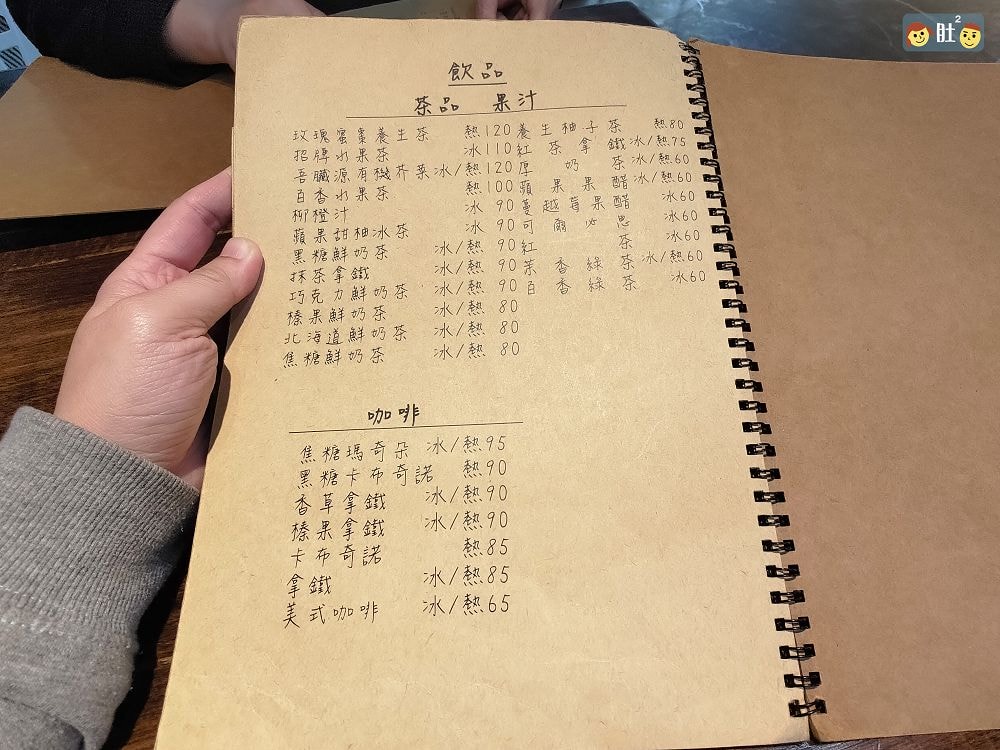 肚²
飲品
茶品 果汁
玫瑰蜜棗養生茶 熱120
招牌水果茶 冰110
吾臟源有機芥菜 冰/熱120
百香水果茶 熱100
柳橙汁 冰 90
蘋果甜柚冰茶 冰 90
黑糖鮮奶茶 冰/熱 90
抹茶拿鐵 冰/熱 90
巧克力鮮奶茶 冰/熱 90
榛果鮮奶茶 冰/熱 80
北海道鮮奶茶 冰/熱 80
焦糖鮮奶茶 冰/熱 80
養生柚子茶 熱80
紅茶拿鐵 冰/熱75
厚奶茶 冰/熱60
蘋果果醋 冰/熱60
蔓越莓果醋 冰60
可爾必思 冰60
紅茶 冰60
茉香綠茶 冰/熱60
百香綠茶 冰60
咖啡
焦糖瑪奇朵 冰/熱95
黑糖卡布奇諾 熱90
香草拿鐵 冰/熱90
榛果拿鐵 冰/熱90
卡布奇諾 熱85
拿鐵 冰/熱85
美式咖啡 冰/熱65